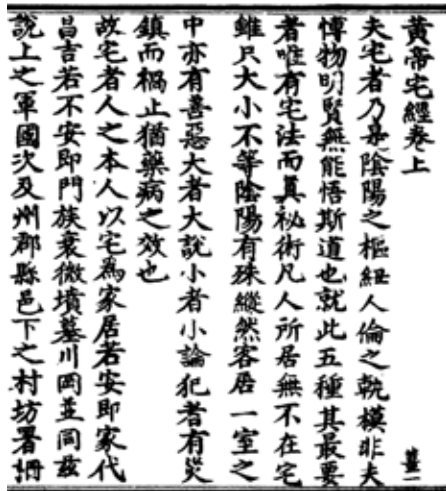 黃帝宅經卷上
薑一
夫宅者乃是陰陽之樞紐人倫之軌模非夫
博物明賢無能悟斯道也就此五種其最要
者唯有宅法而真祕術凡人所居無不在宅
雖只大小不等陰陽有殊縱然客居一室之
中亦有善惡大者大說小者小論犯者有災
鎮而禍止猶藥病之效也
故宅者人之本人以宅為家居若安即家代
昌吉若不安即門族衰微墳墓川岡並同茲
說上之軍國次及州郡縣邑下之村坊署柵